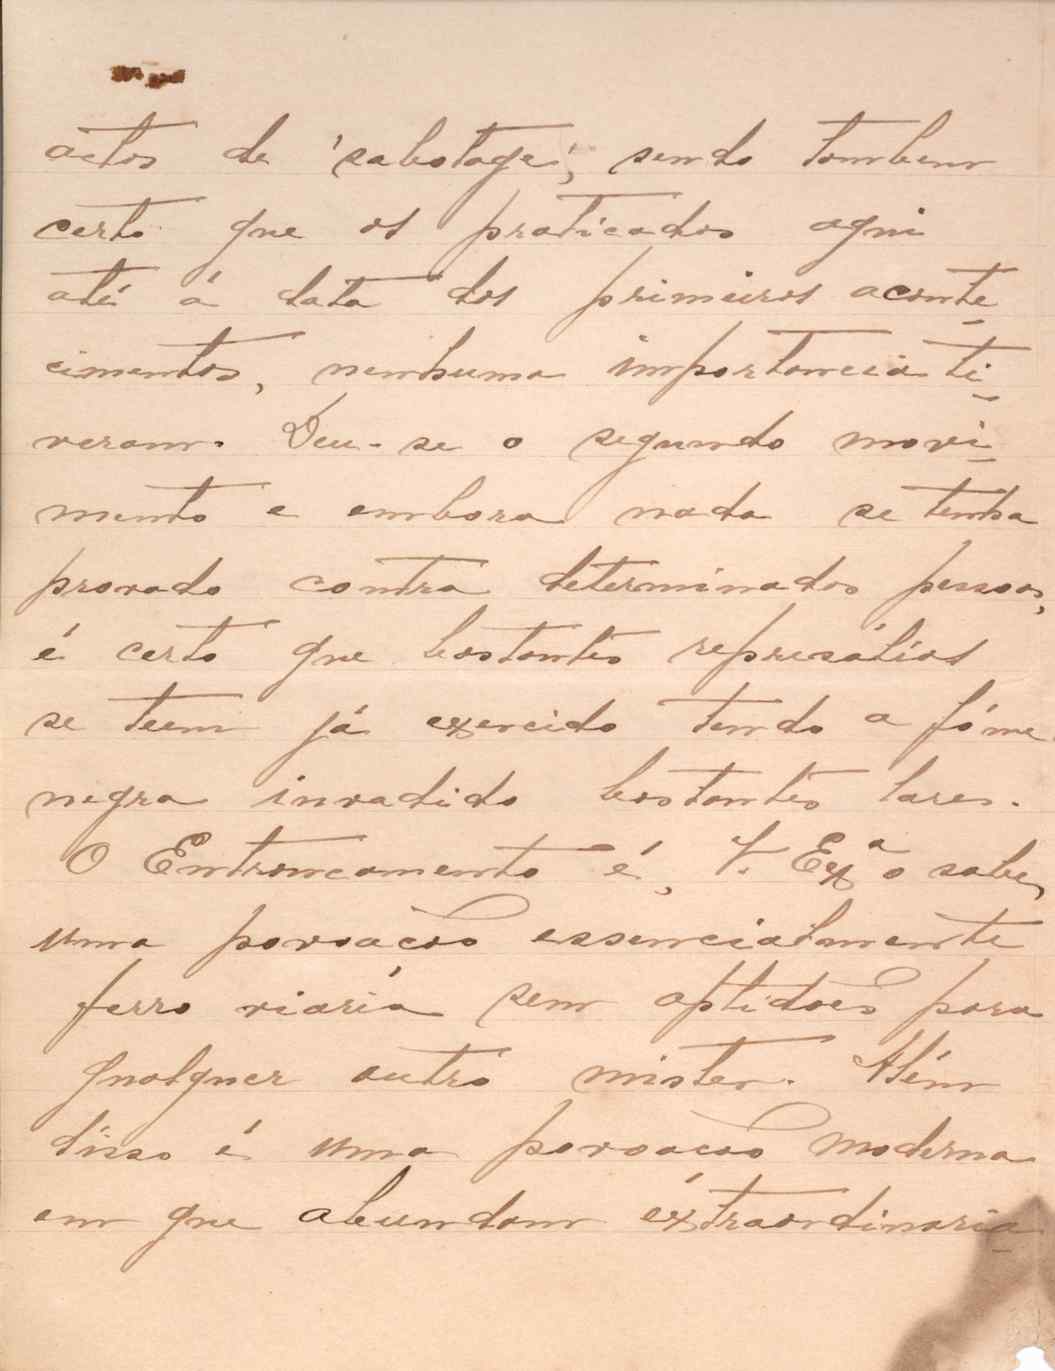 actos de "sabotage", sendo tambem
certo que os praticados aqui
até á data dos primeiros aconte-
cimentos, nenhuma importancia ti-
veram. Deu-se o segundo movi-
mento e embora nada se tenha
provado contra determinadas pessoas,
é certo que bastantes represálias
se teem já exercido tendo a fóme
negra invadido bastantes lares.
O Entroncamento é, V. Exª o sabe,
uma povoação essencialmente
ferro viaria sem aptidões para
qualquer outro mister. Além
disso é uma povoação moderna
em que abundam extraordinaria-